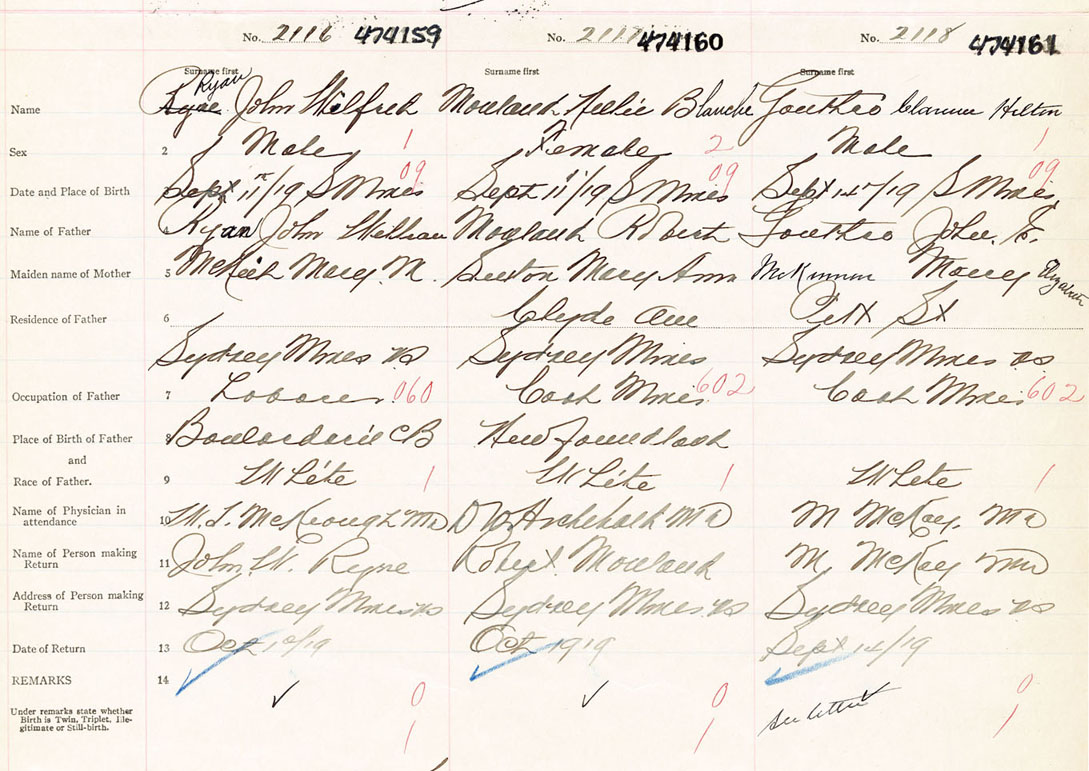 No. 2116 474159 No. 2117 474160 No. 2118 474161
Surname first Surname first Surname first
Ryan
Name John Wilfred Mouland Nellie Blanche Gouthro Clarence Hilton
Sex 2 Male 1 Female 2 Male 1
09 09 09
Date and Place of Birth Sept 11/19 S Mines Sept 11/19 S Mines Sept 14/19 S Mines
Name of Father 4 Ryan John William Mouland Robert Gouthro John
Maiden name of Mother 5 Mary M. Mary Ann McKinnon Mary Elizabeth
Residence of Father 6 Clyde Ave Pitt St
Sydney Mines NS Sydney Mines Sydney Mines NS
Occupation of Father 7 Laborer 060 Coal Miner 602 Coal Miner 602
Place of Birth of Father 8 Boulardarie CB Newfoundland
and
Race of Father. 9 White 1 White 1 White 1
Name of Physician in attendance 10 McKeough MD Archibald MD M McKay. MD
Name of Person making Return 11 John W. Ryne Robert Mouland M. McKay MD
Address of Person making Return 12 Sydney Mines NS Sydney Mines NS Sydney Mines NS
Date of Return 13 Oct /19 Oct 1919 Sept 14/19
REMARKS 14
0 0 0
Under remarks state whether
Birth is Twin, Triplet, Ille-
gitimate or Still-birth. see letter
1 1 1